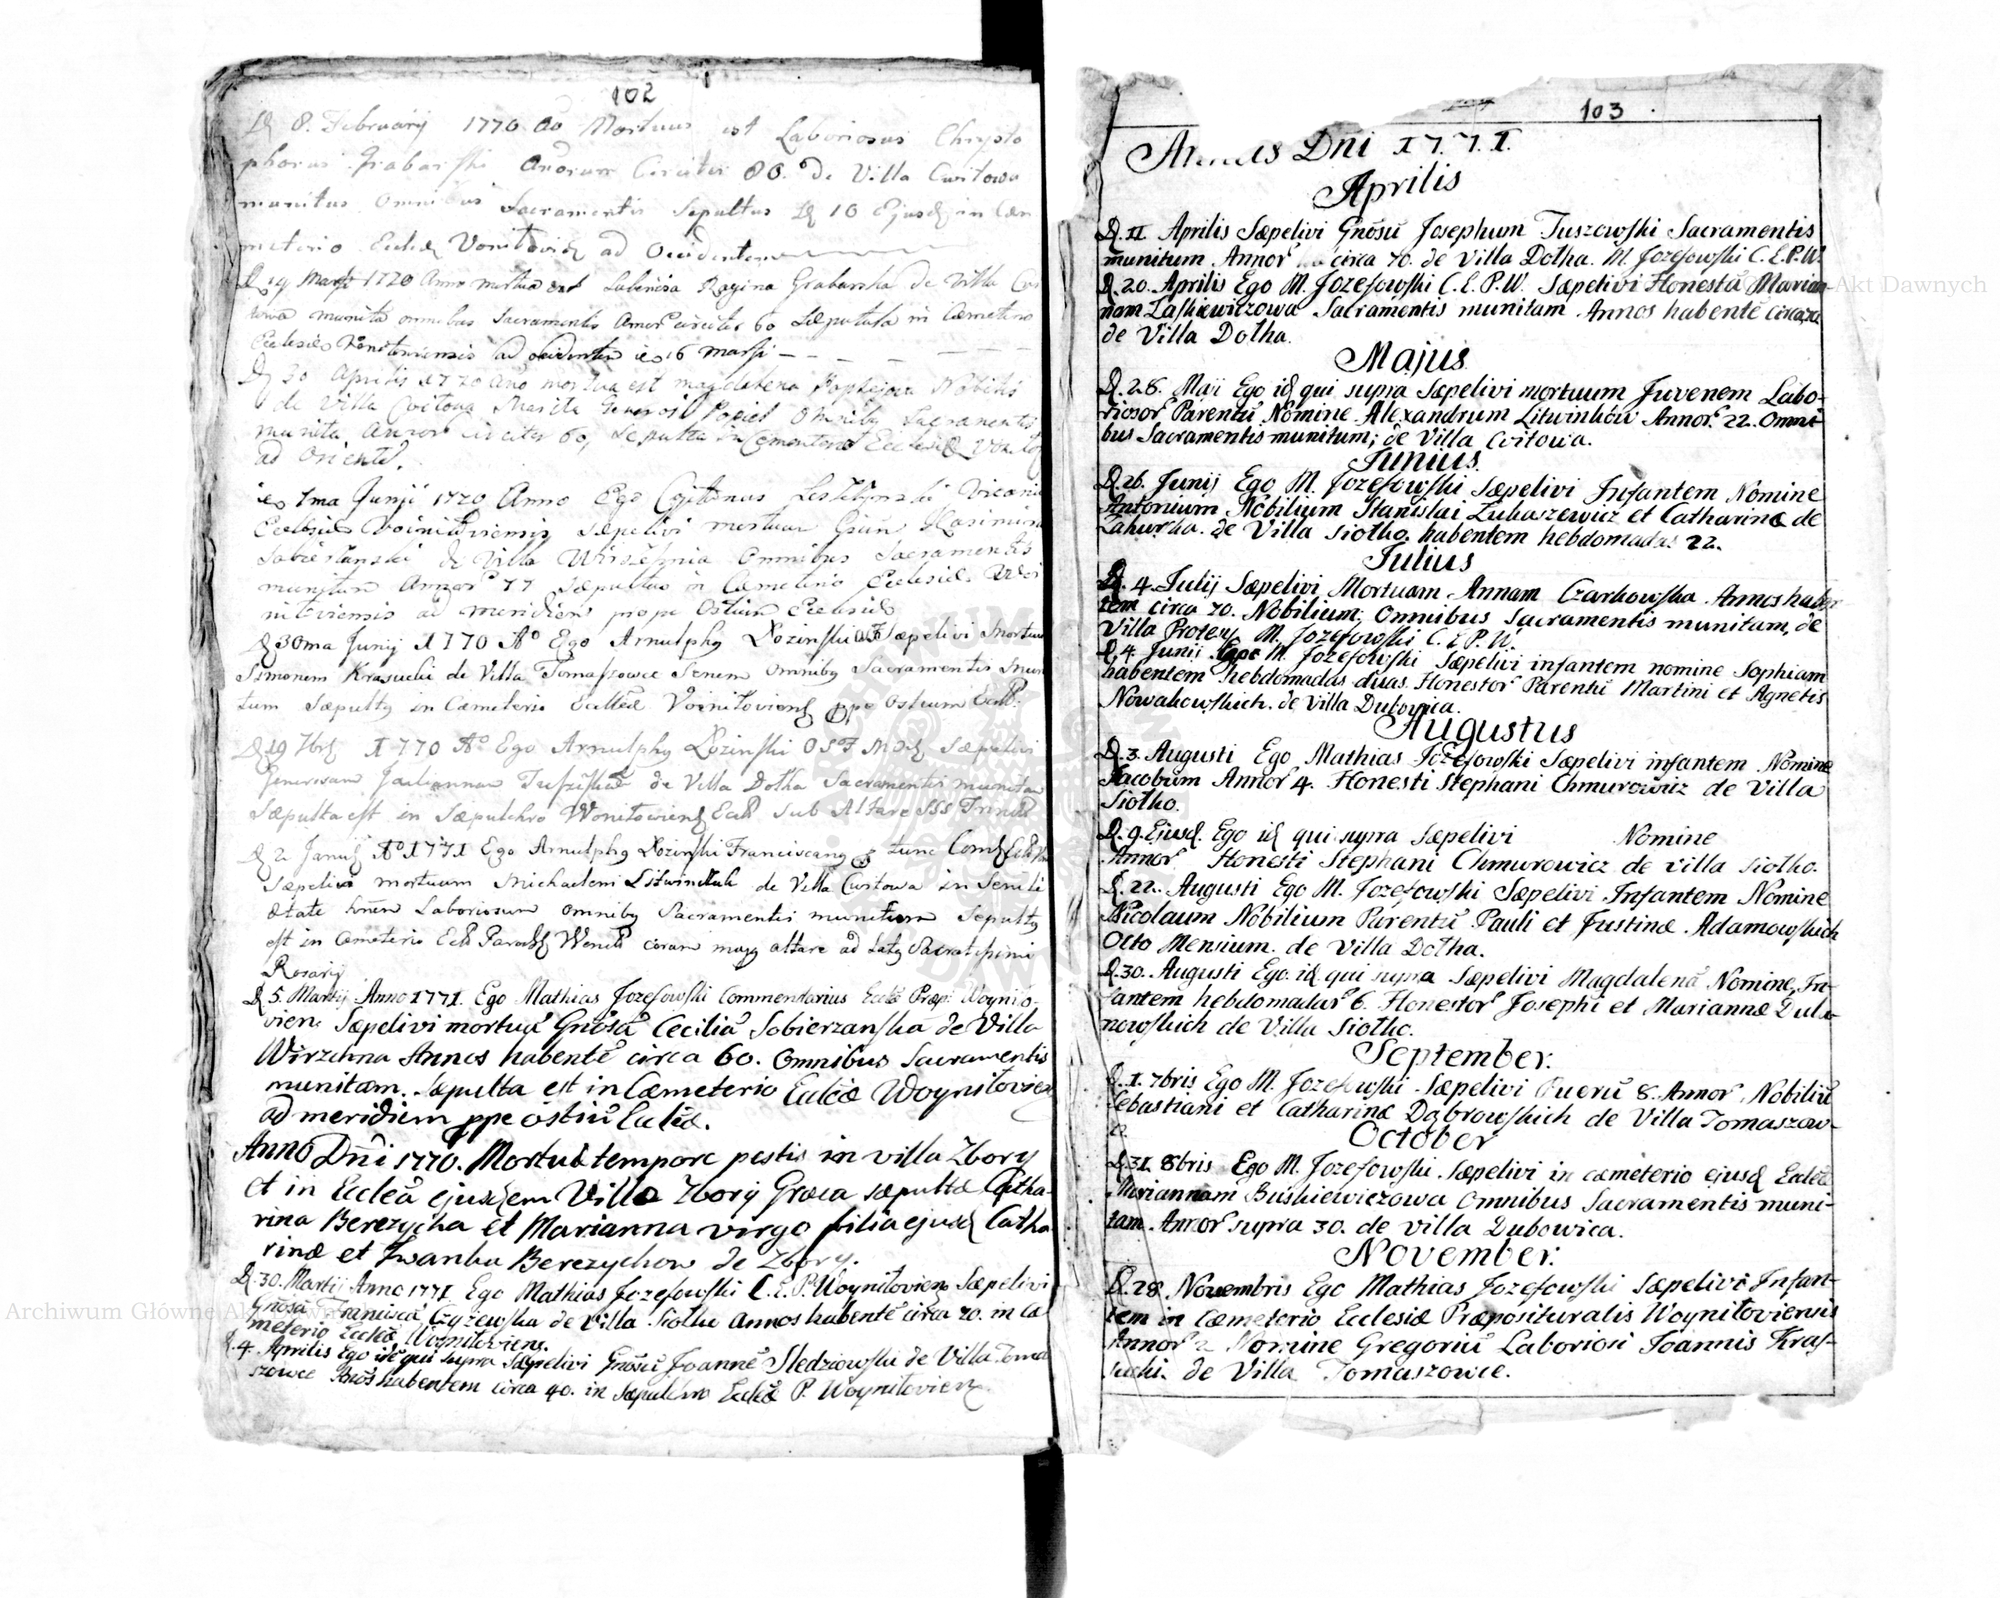 102
D 8. Februarij 1770 Ao Mortuus est Laboriosus Chrysto
phorus Grabarski Anorum Circiter 80. de Villa Cwitowa
munitus Omnibus Sacramentis Sepultus D 10 Ejusd in Cæm
meterio Eccliæ ad Occidentem
D 19 Marsi 1770 Anno mortua est Laboriosa Regina Grabarska de Villa Cwi
towa munita omnibus Sacramentis Anor circiter 60 Sæputata in Cæmeterio
Eclesiæ ad ocidentem 16 marsi
D 30 Aprilis 1770 Ano mortua est Magdalena Nobilis
de Villa Cwitowa Popiel Omniby Sacramentis
munita, Anror circiter 60, Sepulta in Cementerio Ecclesiæ
ad Orientē.
1ma Junji 1770 Anno Ego Leskszynski Vicarius
Ecclesiæ Sæpelivi mortuum Gsum Kasimirum
Sobierzanski de Villa Wirzchnia Omnibus Sacramentis
munitum Annor 77 Sæpultus in Cæmeterio Ecclesiæ Woi
nitoviensis ad meridiem prope Ostium Ecclesiæ
D 30ma Junij 1770 Ao Ego Arnulphg Łozinski OSF Sæpelivi Mortuu
Simonem Krasucki de Villa Tomaszowce Senem Omniby Sacramentis mun
tum Sæpultg in Cæmeterio Eccliæ Voinitoviens ppe Ostium Eccl.
D 19 7bris 1770 Ao Ego Arnulphg Łozinski OSF Sæpelivi
Generosam Juliannam de Villa Dołha Sacramentis munitam
Sæpulta est in Sæpulchro Wonitowiens Eccl Sub Altare SSS Trinit
D 2 Januarij Ao 1771 Ego Arnulphg Łozinski Franciscang tunc
Sæpelivi mortuum Michaelem Litwinchuk de Villa Cwitowa in Senili
Ætate Laboriosum omniby Sacramentis munitum Sepultg
est in Cæmeterio Eccl coram majg altare ad Latg Sacratissimi
Rosarij
D 5. Martij Anno 1771. Ego Mathias Jozefowski Commentarius Ecclæ Præp: Woynio-
viens Sæpelivi mortuā Gnosā Ceciliā Sobierzanska de Villa
Wirzchna Annos habentē circa 60. Omnibus Sacramentis
munitam. Sæpulta est in Cæmeterio Eccleæ Woynitovien
ad meridiem ppe ostiū Eccliæ.
Anno Dñi 1770. Mortuæ tempore pestis in villa Zbory
et in Eccleā ejusdem Villæ Zborÿ Græca sæpultæ Catha-
rina Berezycha et Marianna virgo filia ejusd Catha
rinæ et Iwanka Berezychow de Zbory.
D. 30. Martij Anno 1771 Ego Mathias Jozefowski C. E. P. Woynitoviens Sæpelivi
Gnosā Franciscā Czyżewska de Villa Siolko Annos habentē circa 70. in Cæ
meterio Eccleæ Woynitoviens.
D. 4. Aprilis Ego idē qui supra Sæpelivi Gnosū Joannē Sledziowski de Villa Toma
szowce Anōs habentem circa 40. in Sæpulchro Eccleæ P. Woynitoviens.
103
Annus Dñi 1771.
Aprilis
D. 11 Aprilis Sæpelivi Gnosū Josephum Tuszowski Sacramentis
munitum Annor circa 70. de Villa Dołha. M. Jozefowski C. E. P. W.
D. 20. Aprilis Ego M. Jozefowski C. E. P. W. Sæpelivi Honestā Marian-
nam Laskiewiczowa Sacramentis munitam Annos habentē circa
de Villa Dołha.
Majus
D. 28. Maii Ego id qui supra Sæpelivi mortuum Juvenem Labo-
riosor Parentū Nomine Alexandrum Litwinkow Annor 22. Omni-
bus Sacramentis munitum; de Villa Cvitowa.
Junius.
D. 26. Junij Ego M. Jozefowski Sæpelivi Infantem Nomine
Antonium Nobilium Stanislai Łukaszewicz et Catharinæ de
Zahurska. de Villa Siołko. habentem hebdomadas 22.
Julius
D. 4. Julij Sæpelivi Mortuam Annam Czarkowska. Annos haben
tem circa 70. Nobilium; Omnibus Sacramentis munitam, de
Villa Protesy M. Jozefowski C. E. P. W.
D. 4 Junij Ego M. Jozefowski Sæpelivi infantem nomine Sophiam
habentem hebdomadas duas Honestor Parentū Martini et Agnetis
Nowakowskich. de Villa Dubowica.
Augustus
D. 3. Augusti Ego Mathias Jozefowski Sæpelivi infantem Nomine
Jacobum Annor 4. Honesti Stephani Chmurowicz de Villa
Siołko.
D. 9. Ejusd. Ego id qui supra Sæpelivi Nomine
Annor Honesti Stephani Chmurowicz de villa Siołko.
D. 22. Augusti Ego M. Jozefowski Sæpelivi Infantem Nomine
Nicolaum Nobilium Parentū Pauli et Justinæ Adamowskich
Octo Mensium. de Villa Dołha.
D. 30. Augusti Ego. id qui supra Sæpelivi Magdalenā Nomine, In-
fantem hebdomadar 6. Honestor Josephi et Mariannæ Dula-
nowskich de Villa Siołko.
September.
D. 1. 7bris Ego M. Jozefowski Sæpelivi Puerū 8. Annor Nobiliū
Sebastiani et Catharinæ Dąbrowskich de Villa Tomaszow-
ce.
October
D. 31. 8bris Ego M. Jozefowski Sæpelivi in cæmeterio ejusd Eccleæ
Mariannam Buskiewiczowa Omnibus Sacramentis muni-
tam. Annor supra 30. de villa Dubowica.
November.
D. 28. Novembris Ego Mathias Jozefowski Sæpelivi Infan-
tem in Cæmeterio Ecclesiæ Præposituralis Woynitoviensis
Annor 2 Nomine Gregoriū Laboriosi Joannis Kras-
sucki. de Villa Tomaszowce.
Archiwum Główne Akt Dawnych